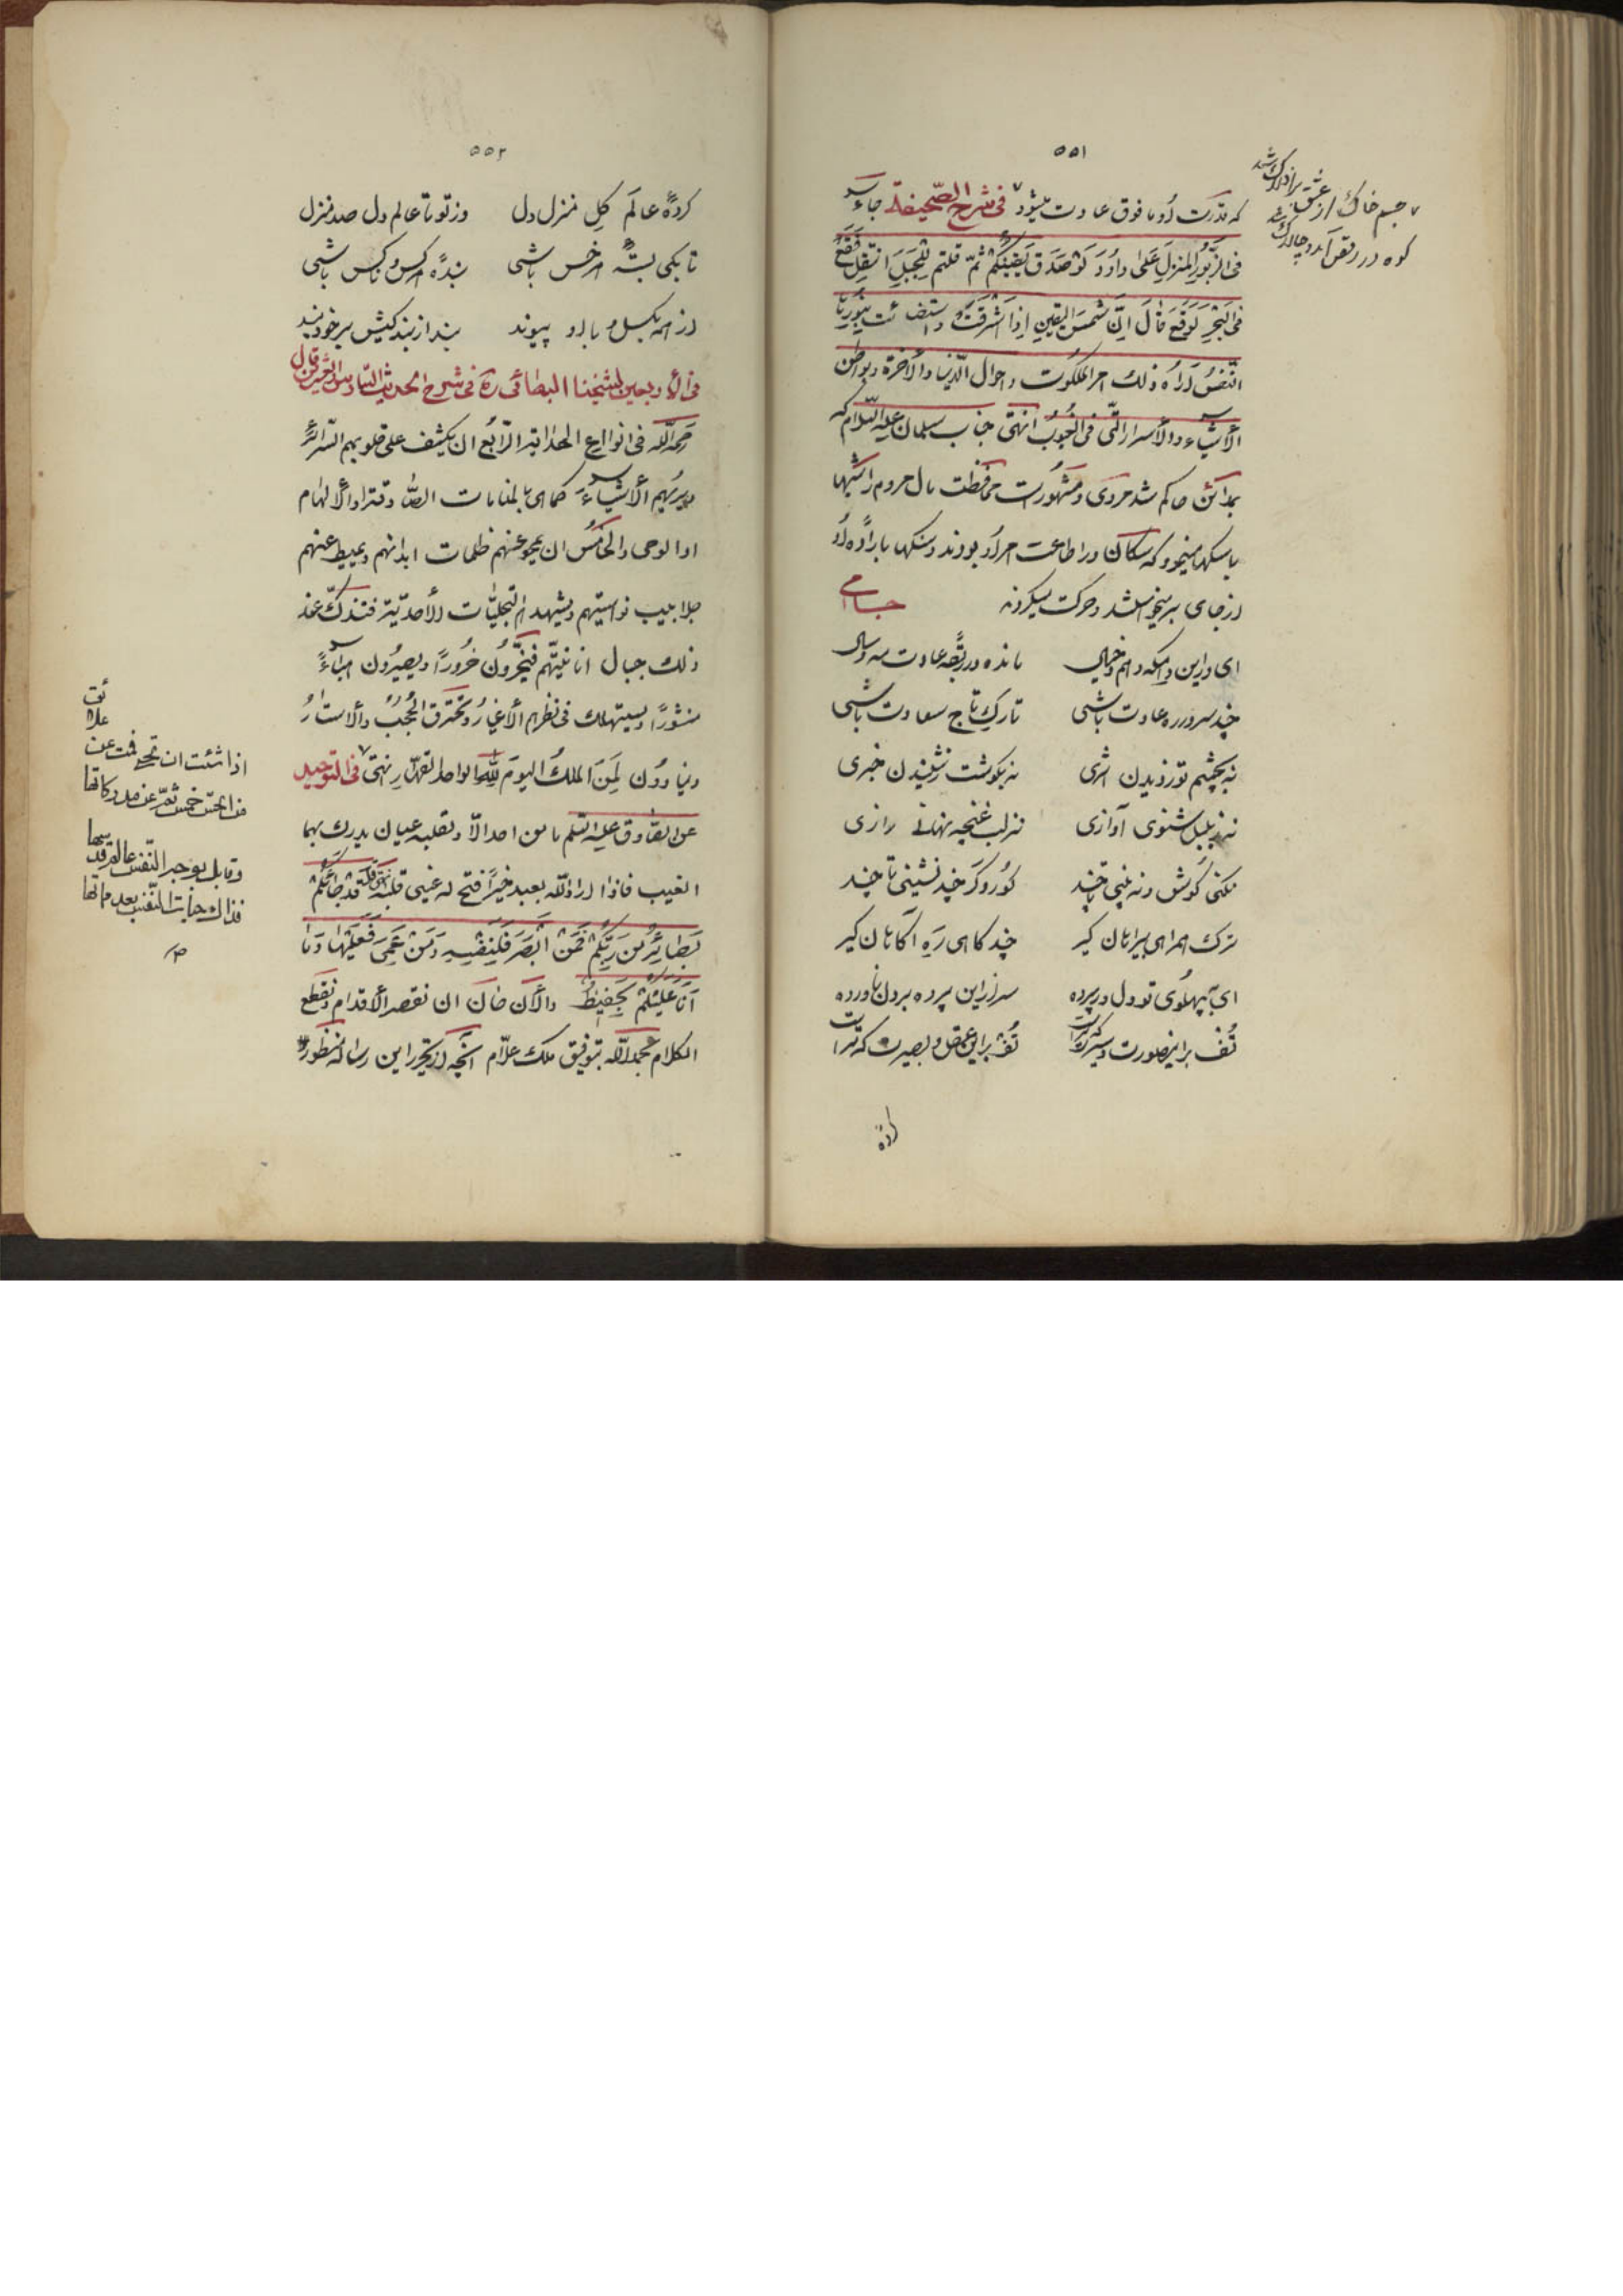 ۵۵۱
که قدرت او ما فوق عادت میشود فی شرح الصّحیفة جاء
فی الزّبور المنزل علی داود لو صدق یقینکم ثمّ قلتم للجبل انتقل فقع
فی البحر لوقع قال انّ شمس الیقین اذا اشرقت و استضائت بنورها
النّفس أراه ذلک امر الملکوت و احوال الدّنیا و الأخرة و بواطن
الأشیاء و الأسرار الّتی فی الغیوب انتهی جناب سلمان علیه السّلام که
بمداین حاکم شد مروی و مشهورست محافظت مال مردم را شبها
با سگها مینمود که سگان در اطاعت امر او بودند و سنگها باراده او
از جای برمیخواستند و حرکت میکردند جامی
ای درین دامگه وهم و خیال مانده در ربقه عادت مه و سال
چند سر در ره عادت باشی تارک تاج سعادت باشی
نه بچشم تو ز دیدن اثری نه بگوشت ز شنیدن خبری
نه ز بلبل شنوی آوازی نه ز لب غنچه نهانی رازی
نکنی گوش و نه بینی تا چند کور و کر چند نشینی تا چند
ترک همراهی بیراهان گیر چند گاهی ره آگاهان گیر
ای بپهلوی تو دل در پرده سر ازین پرده برون ناورده
تف برین صورت و سیرت که تراست تف برین عقل و بصیرت که تراست
کرده
جسم خاک از عشق بر افلاک شد
کوه در رقص آمد و چالاک شد
۵۵۲
کرده عالم گل منزل دل وز تو تا عالم دل صد منزل
تا بکی بسته هر خس باشی بنده هر کس و ناکس باشی
از همه بگسل و با او پیوند بند از بند کیش بر خود بند
فی الأربعین لشیخنا البهائی ره فی شرح الحدیث السّادس و العشر قال
رحمه الله فی انواع الهدایة الرّابع ان یکشف علی قلوبهم السّرائر
و یریهم الأشیاء کما هی بالمنامات الصّادقة او الألهام
او الوحی و الخامس ان یمحو عنهم ظلمات ابدانهم و یمیط عنهم
جلابیب نواسیتهم و یشهدهم التجلیّات الأحدیّة فتندکّ عند
ذلک جبال انانیّتهم فیخرّون خرورًا و یصیرون هباءً
منثورًا و یستهلک فی نظرهم الأغیار و تحترق الحجب و الاستار
و ینادون لمن الملک الیوم لله الواحد القهّار انتهی فی التوحید
عن الصّادق علیه السّلم ما من احد الّا و لقلبه عینان یدرک بهما
الغیب فاذا اراد الله بعبد خیرًا فتح له عینی قلبه قد جائکم
بصائر من ربّکم فمن ابصر فلنفسه و من عمی فعلیها و ما
انا علیکم بحفیظ و الأن حان ان نقصر الأقدام و نقطع
الکلام بحمدالله بتوفیق ملک علّام آنچه از تحریر این رساله منظور
اذا شئت ان تحیی فمت عن علائق
من الحسّ خمس ثمّ عن مدرکاتها
و قابل بوجه النّفس عالم قدسها
فذاک حیات النّفس بعد مماتها